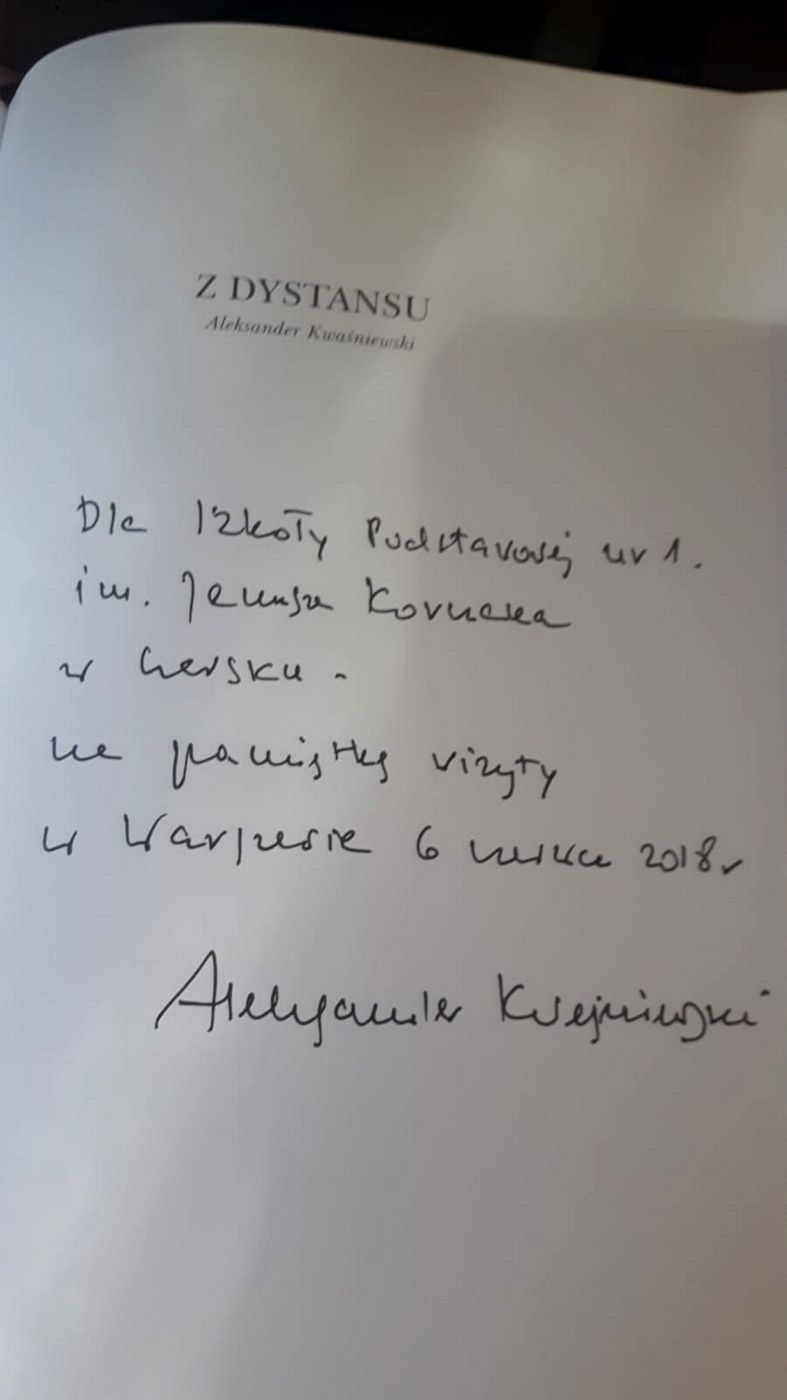 Z DYSTANSU
Aleksander Kwaśniewski
Dla Szkoły Podstawowej nr 1.
im. Janusza Korczaka
w Czersku -
na pamiątkę wizyty
w Warszawie 6 marca 2018r
Aleksander Kwaśniewski